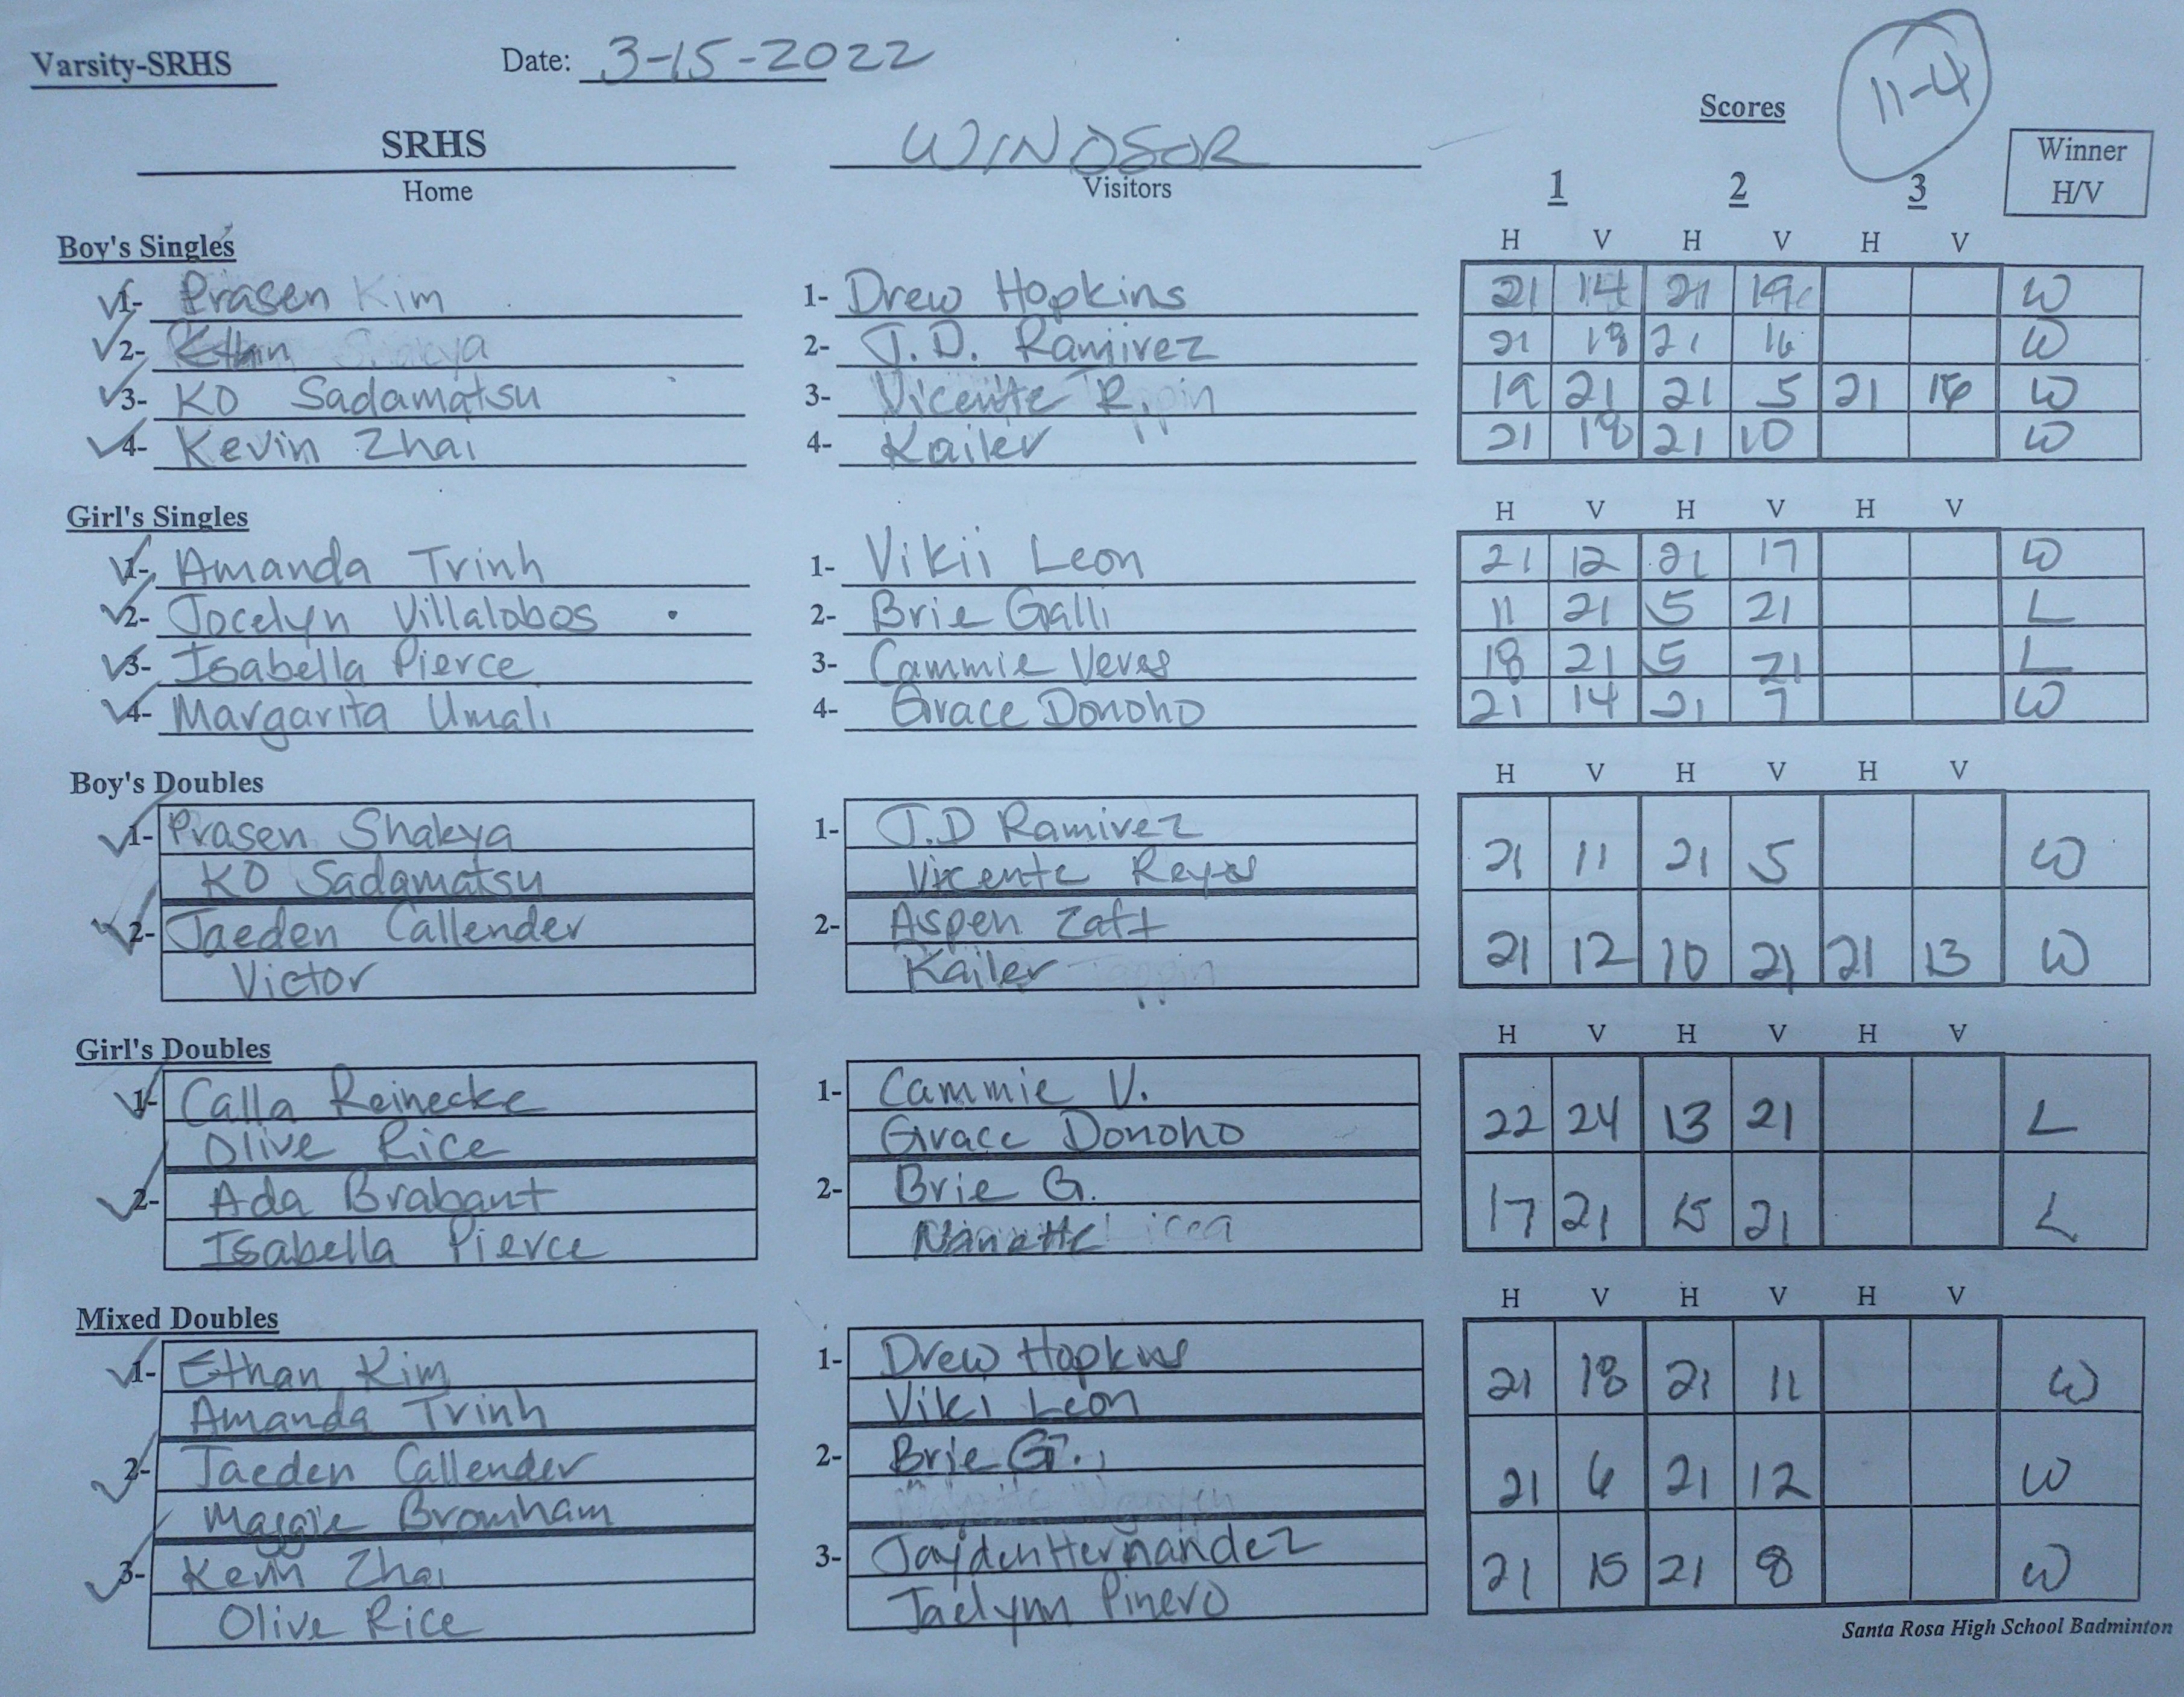 Varsity-SRHS Date: 3-15-2022
11-4
Scores
SRHS WINDSOR
Home Visitors
1 2 3 Winner H/V
Boy's Singles H V H V H V
1- Prasen Kim 1- Drew Hopkins 21 14 21 19 W
2- Ethan 2- J.D. Ramirez 21 18 21 16 W
3- KO Sadamatsu 3- Vicente R. 19 21 21 5 21 W
4- Kevin Zhai 4- Kailer 21 18 21 10 W
Girl's Singles H V H V H V
1- Amanda Trinh 1- Vikii Leon 21 12 21 17 W
2- Jocelyn Villalobos 2- Brie Galli 11 21 5 21 L
3- Isabella Pierce 3- Cammie Veres 18 21 5 21 L
4- Margarita Umali 4- Grace Donoho 21 14 21 7 W
Boy's Doubles H V H V H V
1- Prasen Shakya 1- J.D Ramirez 21 11 21 5 W
KO Sadamatsu Vicente Reyes
2- Jaeden Callender 2- Aspen Zaft 21 12 10 21 21 13 W
Victor Kailer
Girl's Doubles H V H V H V
1- Calla Reinecke 1- Cammie V. 22 24 13 21 L
Olive Rice Grace Donoho
2- Ada Brabant 2- Brie G. 17 21 15 21 L
Isabella Pierce Nanette Licea
Mixed Doubles H V H V H V
1- Ethan Kim 1- Drew Hopkins 21 18 21 11 W
Amanda Trinh Viki Leon
2- Jaeden Callender 2- Brie G. 21 6 21 12 W
Maggie Bromham
3- Kevin Zhai 3- Jayden Hernandez 21 15 21 8 W
Olive Rice Jaelynn Pinero
Santa Rosa High School Badminton